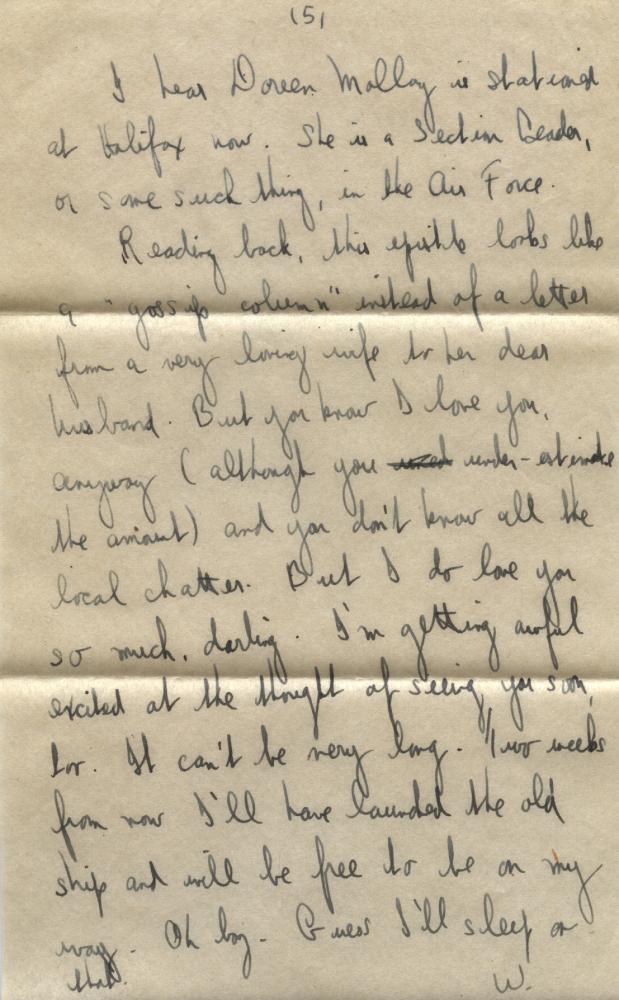 (5)
I hear Doreen Mallay is stationed
at Halifax now. She is a Section Leader,
or some such thing, in the Air Force.
Reading back, this epistle looks like
a "gossip column" instead of a letter
from a very loving wife to her dear
husband. But you know I love you,
anyway (although you under-estimate
the amount) and you don't know all the
local chatter. But I do love you
so much, darling. I'm getting awful
excited at the thought of seeing you soon,
too. It can't be very long. Two weeks
from now I'll have launched the old
ship and will be free to be on my
way. Oh boy. Guess I'll sleep on
that.
W.